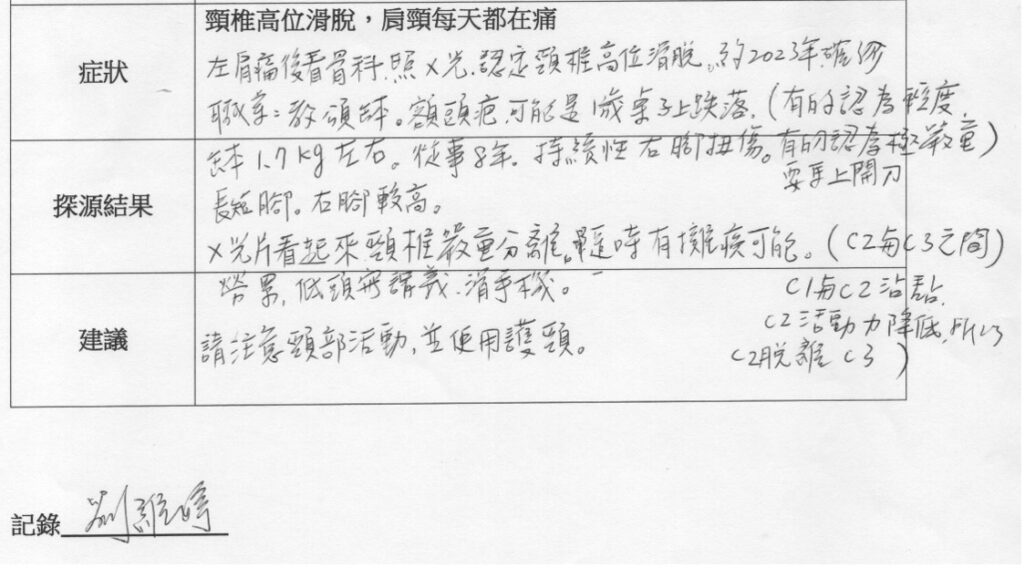 頸椎高位滑脫，肩頸每天都在痛
症狀
左肩痛後看骨科.照X光.認定頸椎高位滑脫。約2023年確診
職業：教頌缽。額頭疤.可能是1歲桌子上跌落.(有的認為輕度.
缽1.7kg左右。從事8年.持續性右腳扭傷。有的認為極嚴重)
要馬上開刀
探源結果
長短腳。右腳較高。
X光片看起來頸椎嚴重分離。隨時有攤瘓可能。(C2與C3之間)
勞累,低頭寫講義.滑手機。
C1與C2沾黏.
C2活動力降低,所以
建議
請注意頸部活動,並使用護頸。
C2脫離C3)
記錄